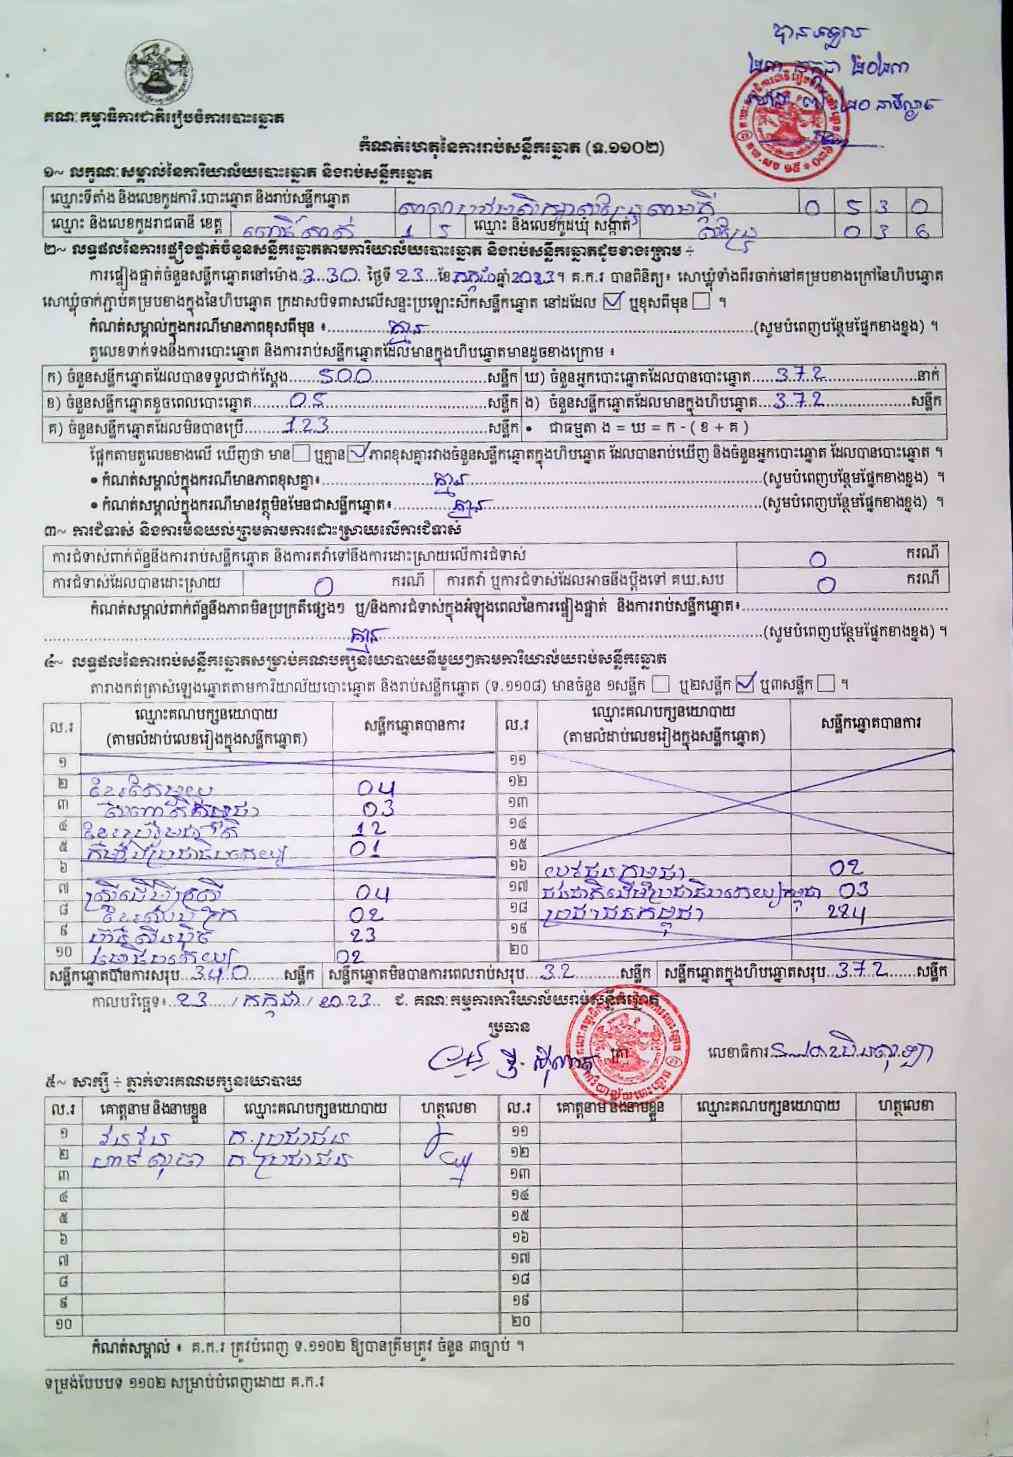 បានទទួល
២៣ កក្កដា ២០២៣
គណៈកម្មាធិការជាតិរៀបចំការបោះឆ្នោត
កំណត់ហេតុនៃការរាប់សន្លឹកឆ្នោត (ទ.១១០២)
១~ លក្ខណៈសម្គាល់នៃការិយាល័យបោះឆ្នោត និងរាប់សន្លឹកឆ្នោត
ឈ្មោះទីតាំង និងលេខកូដការិ.បោះឆ្នោត និងរាប់សន្លឹកឆ្នោត 0 5 3 0
ឈ្មោះ និងលេខកូដរាជធានី ខេត្ត ពោធិ៍សាត់ 1 5 ឈ្មោះ និងលេខកូដឃុំ សង្កាត់ 0 3 6
២~ លទ្ធផលនៃការផ្ទៀងផ្ទាត់ចំនួនសន្លឹកឆ្នោតតាមការិយាល័យបោះឆ្នោត និងរាប់សន្លឹកឆ្នោតដូចខាងក្រោម ÷
ការផ្ទៀងផ្ទាត់ចំនួនសន្លឹកឆ្នោតនៅម៉ោង 3.30 ថ្ងៃទី 23 ខែ កក្កដា ឆ្នាំ 2023។ គ.ក.រ បានពិនិត្យ៖ សោឃ្លុំទាំងពីរចាក់នៅគម្របខាងក្រៅនៃហិបឆ្នោត
សោឃ្លុំចាក់ភ្ជាប់គម្របខាងក្នុងនៃហិបឆ្នោត ក្រដាសបិទពាសលើសន្ទះប្រឡោះស៊កសន្លឹកឆ្នោត នៅដដែល ☑ ឬខុសពីមុន ☐ ។
កំណត់សម្គាល់ក្នុងករណីមានភាពខុសពីមុន ៖ គ្មាន (សូមបំពេញបន្ថែមផ្នែកខាងខ្នង) ។
តួលេខទាក់ទងនឹងការបោះឆ្នោត និងការរាប់សន្លឹកឆ្នោតដែលមានក្នុងហិបឆ្នោតមានដូចខាងក្រោម ៖
ក) ចំនួនសន្លឹកឆ្នោតដែលបានទទួលជាក់ស្តែង 500 សន្លឹក ឃ) ចំនួនអ្នកបោះឆ្នោតដែលបានបោះឆ្នោត 372 នាក់
ខ) ចំនួនសន្លឹកឆ្នោតខូចពេលបោះឆ្នោត 05 សន្លឹក ង) ចំនួនសន្លឹកឆ្នោតដែលមានក្នុងហិបឆ្នោត 372 សន្លឹក
គ) ចំនួនសន្លឹកឆ្នោតដែលមិនបានប្រើ 123 សន្លឹក • ជាធម្មតា ង = ឃ = ក - ( ខ + គ )
ផ្អែកតាមតួលេខខាងលើ ឃើញថា មាន ☐ ឬគ្មាន ☑ ភាពខុសគ្នារវាងចំនួនសន្លឹកឆ្នោតក្នុងហិបឆ្នោត ដែលបានរាប់ឃើញ និងចំនួនអ្នកបោះឆ្នោត ដែលបានបោះឆ្នោត ។
• កំណត់សម្គាល់ក្នុងករណីមានភាពខុសគ្នា៖ គ្មាន (សូមបំពេញបន្ថែមផ្នែកខាងខ្នង) ។
• កំណត់សម្គាល់ក្នុងករណីមានវត្ថុមិនមែនជាសន្លឹកឆ្នោត៖ គ្មាន (សូមបំពេញបន្ថែមផ្នែកខាងខ្នង) ។
៣~ ការជំទាស់ និងការមិនយល់ព្រមតាមការដោះស្រាយលើការជំទាស់
ការជំទាស់ពាក់ព័ន្ធនឹងការរាប់សន្លឹកឆ្នោត និងការតវ៉ាទៅនឹងការដោះស្រាយលើការជំទាស់ 0 ករណី
ការជំទាស់ដែលបានដោះស្រាយ 0 ករណី ការតវ៉ា ឬការជំទាស់ដែលអាចនឹងប្តឹងទៅ គឃ.សប 0 ករណី
កំណត់សម្គាល់ពាក់ព័ន្ធនឹងភាពមិនប្រក្រតីផ្សេងៗ ឬ/និងការជំទាស់ក្នុងអំឡុងពេលនៃការផ្ទៀងផ្ទាត់ និងការរាប់សន្លឹកឆ្នោត៖
គ្មាន (សូមបំពេញបន្ថែមផ្នែកខាងខ្នង) ។
៤~ លទ្ធផលនៃការរាប់សន្លឹកឆ្នោតសម្រាប់គណបក្សនយោបាយនីមួយៗតាមការិយាល័យរាប់សន្លឹកឆ្នោត
តារាងកត់ត្រាសំឡេងឆ្នោតតាមការិយាល័យបោះឆ្នោត និងរាប់សន្លឹកឆ្នោត (ទ.១១០៨) មានចំនួន ១សន្លឹក ☐ ឬ២សន្លឹក ☑ ឬ៣សន្លឹក ☐ ។
ល.រ ឈ្មោះគណបក្សនយោបាយ (តាមលំដាប់លេខរៀងក្នុងសន្លឹកឆ្នោត) សន្លឹកឆ្នោតបានការ ល.រ ឈ្មោះគណបក្សនយោបាយ (តាមលំដាប់លេខរៀងក្នុងសន្លឹកឆ្នោត) សន្លឹកឆ្នោតបានការ
១ ១១
២ ខ្មែរតែមួយ 04 ១២
៣ 03 ១៣
៤ 12 ១៤
៥ 01 ១៥
៦ ១៦ 02
៧ ស្ត្រីដើម្បីស្ត្រី 04 ១៧ 03
៨ 02 ១៨ ប្រជាជនកម្ពុជា 284
៩ ហ៊្វុនស៊ិនប៉ិច 23 ១៩
១០ 02 ២០
សន្លឹកឆ្នោតបានការសរុប 340 សន្លឹក សន្លឹកឆ្នោតមិនបានការពេលរាប់សរុប 32 សន្លឹក សន្លឹកឆ្នោតក្នុងហិបឆ្នោតសរុប 372 សន្លឹក
កាលបរិច្ឆេទ៖ 23 / កក្កដា / 2023 ជ. គណៈកម្មការការិយាល័យរាប់សន្លឹកឆ្នោត
ប្រធាន
ត្រា
លេខាធិការ
៥~ សាក្សី ÷ ភ្នាក់ងារគណបក្សនយោបាយ
ល.រ គោត្តនាម និងនាមខ្លួន ឈ្មោះគណបក្សនយោបាយ ហត្ថលេខា ល.រ គោត្តនាម និងនាមខ្លួន ឈ្មោះគណបក្សនយោបាយ ហត្ថលេខា
១ គ.ប្រជាជន ១១
២ គ.ប្រជាជន ១២
៣ ១៣
៤ ១៤
៥ ១៥
៦ ១៦
៧ ១៧
៨ ១៨
៩ ១៩
១០ ២០
កំណត់សម្គាល់ ៖ គ.ក.រ ត្រូវបំពេញ ទ.១១០២ ឱ្យបានត្រឹមត្រូវ ចំនួន ៣ច្បាប់ ។
ទម្រង់បែបបទ ១១០២ សម្រាប់បំពេញដោយ គ.ក.រ